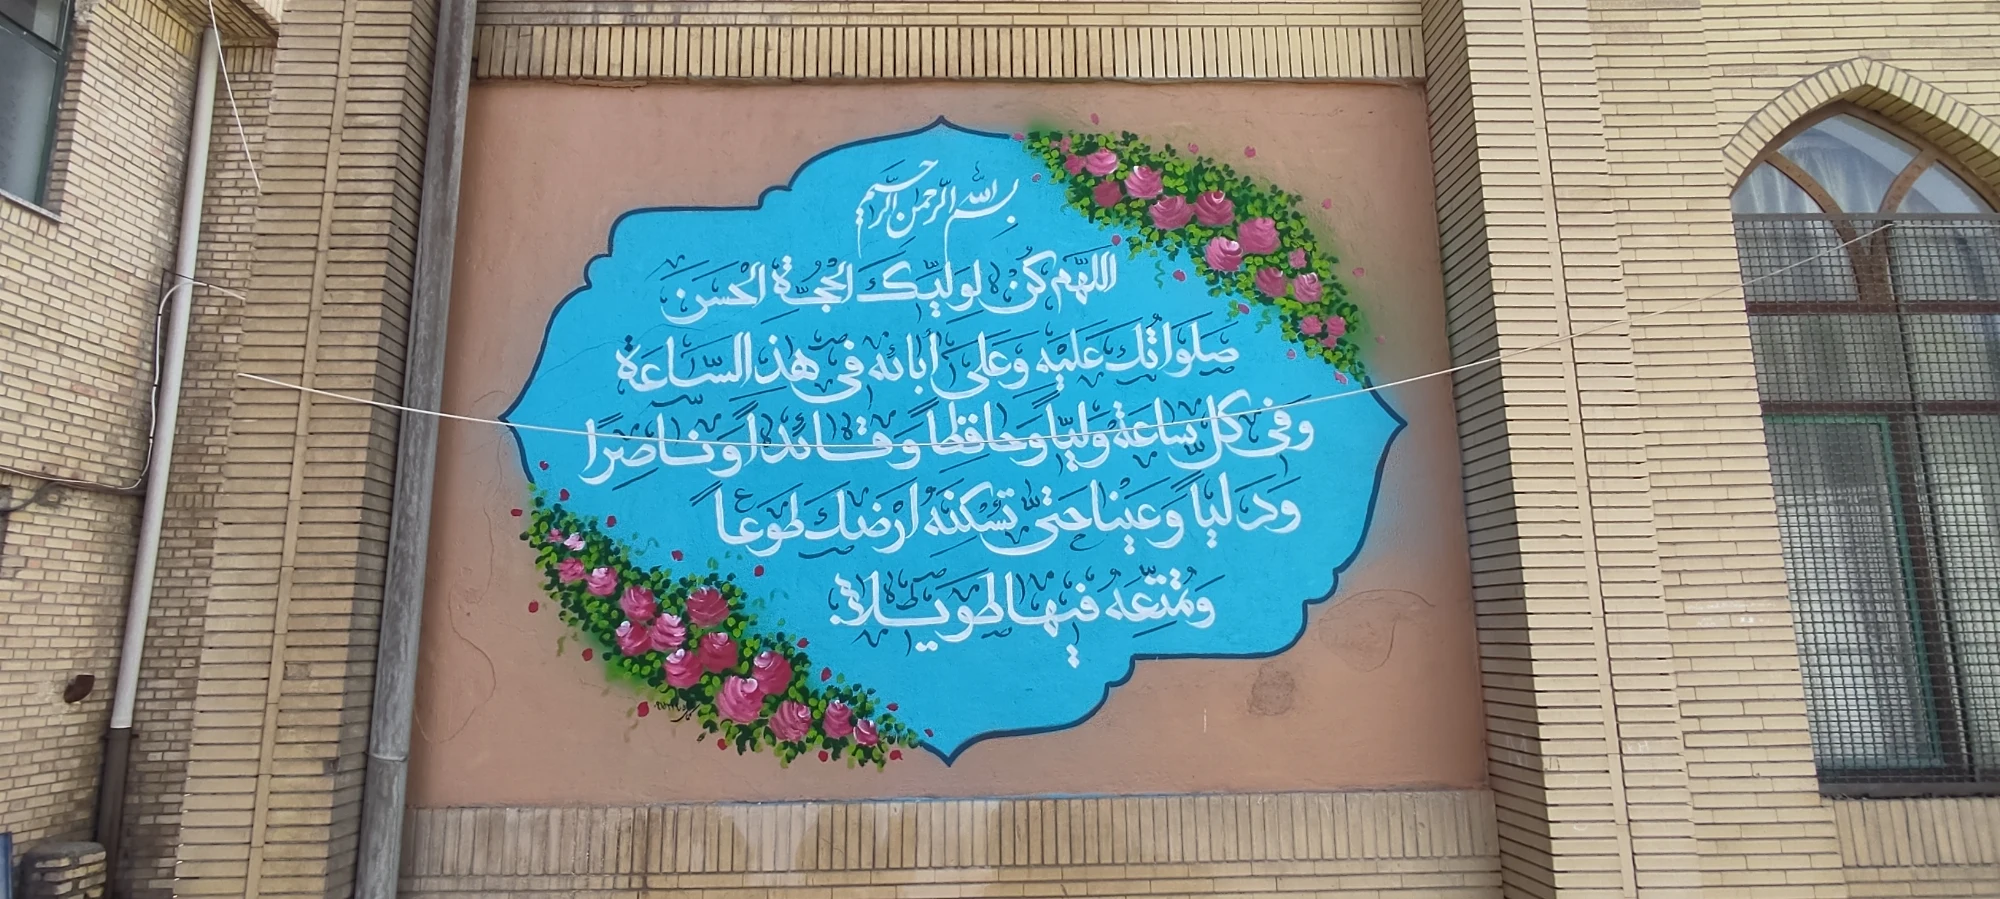 بسم الله الرحمن الرحیم
اللهم کن لولیک الحجة الحسن
صلواتک علیه وعلی ابائه فی هذه الساعة
وفی کل ساعة ولیا وحافظا وقائدا وناصرا
ودلیلا وعینا حتی تسکنه ارضک طوعا
وتمتعه فیها طویلا